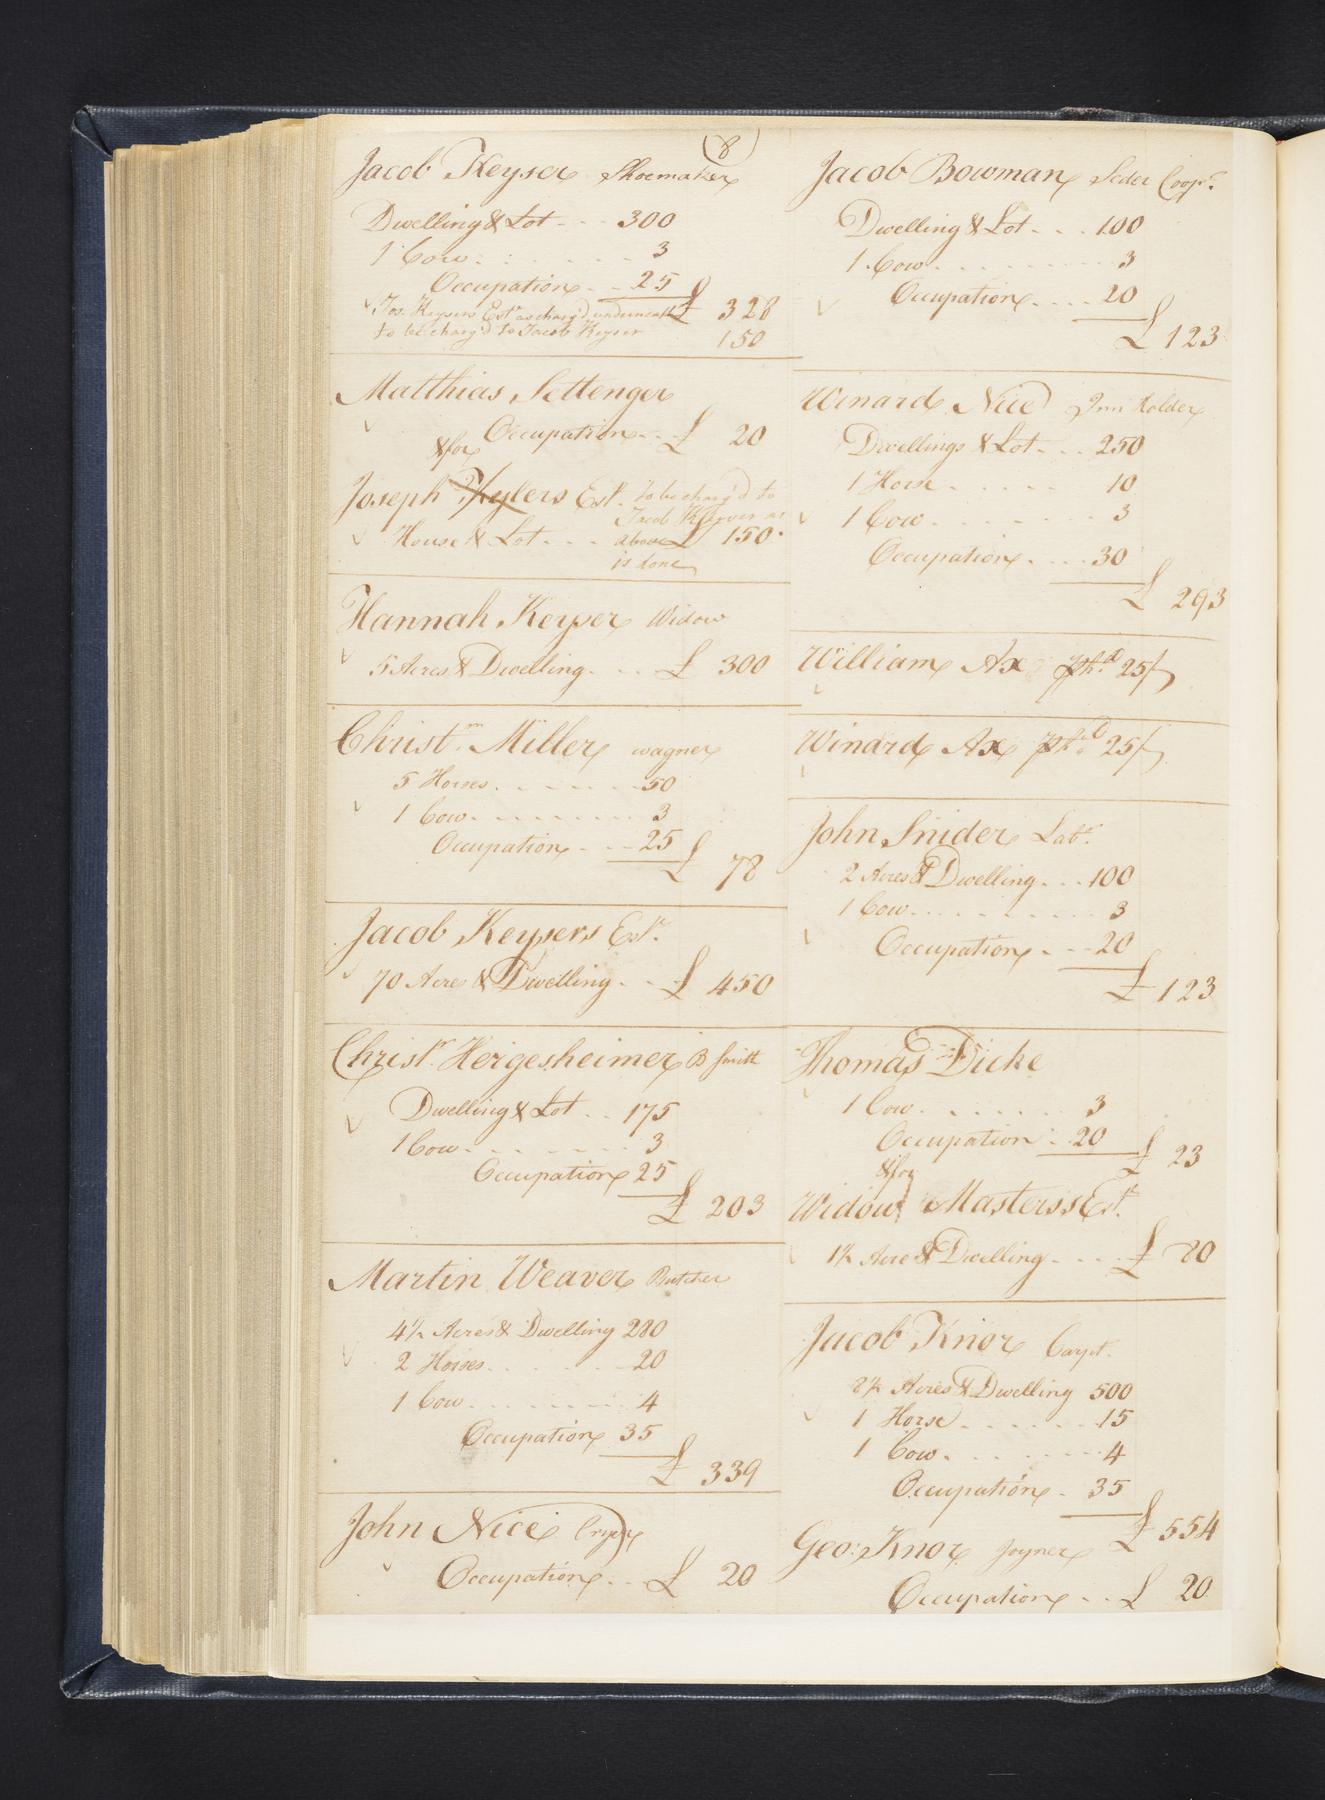 (8)
Jacob Keyser Shoemaker
Dwelling & Lot 300
1 Cow 3
Occupation 25
Jos. Keysers Est. as charg'd underneath £ 328
to be charg'd to Jacob Keyser 150
Matthias Settenger
Occupation £ 20
& for
Joseph Est. to be charg'd to
Jacob Keyser as
House & Lot above £ 150
is done
Hannah Keyser Widow
5 Acres & Dwelling £ 300
Christn. Miller wagner
5 Horses 50
1 Cow 3
Occupation 25
£ 78
Jacob Keysers Est.
70 Acre & Dwelling £ 450
Christr. Hergesheimer B Smith
Dwelling & Lot 175
1 Cow 3
Occupation 25
£ 203
Martin Weaver Butcher
4½ Acres & Dwelling 280
2 Horses 20
1 Cow 4
Occupation 35
£ 339
John Nice
Occupation £ 20
Jacob Bowman Seder Coopr.
Dwelling & Lot 100
1 Cow 3
Occupation 20
£ 123
Winard Nice Inn Holder
Dwellings & Lot 250
1 Horse 10
1 Cow 3
Occupation 30
£ 293
William Ax 25/
Winard Ax 25/
John Snider Labr.
2 Acres & Dwelling 100
1 Cow 3
Occupation 20
£ 123
Thomas Dicke
1 Cow 3
Occupation 20
£ 23
& for
Widow Masterss Est.
1½ Acre & Dwelling £ 80
Jacob Knor Carpt.
8½ Acres & Dwelling 500
1 Horse 15
1 Cow 4
Occupation 35
£ 554
Geo: Knor Joyner
Occupation £ 20